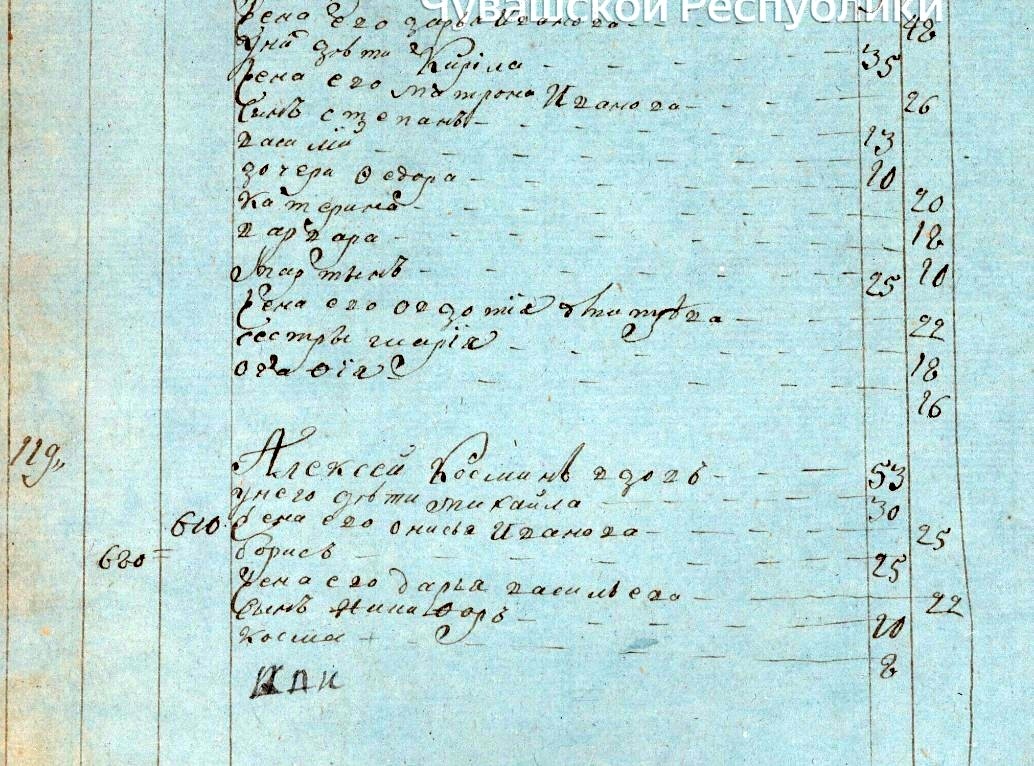 Чувашской Республики
жена его дарья Иванова 48
у нѣ дѣти Кирila 35
жена его матрона Иванова 26
сынъ степанъ 13
василiй 10
дочери Ѳедора 20
катерина 18
варвара 10
мартынъ 25
жена его овдотiя 22
сестры мaрiя 18
16
119 Алексей Косминъ вдовъ 53
у него дѣти михайла 30
610 жена его онисья Иванова 25
620 борисъ 25
жена его дарья васильева 22
сынъ никиѳоръ 10
косма 8